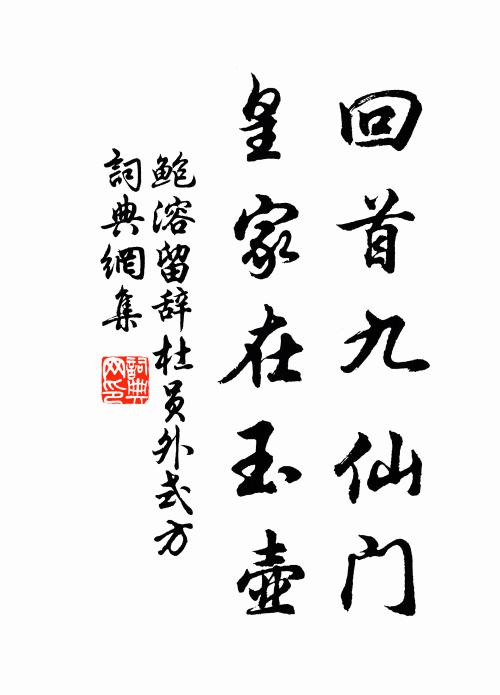 回首九仙门
皇家在玉壶
鲍溶留辞杜员外式方
词典網集
詞典网印